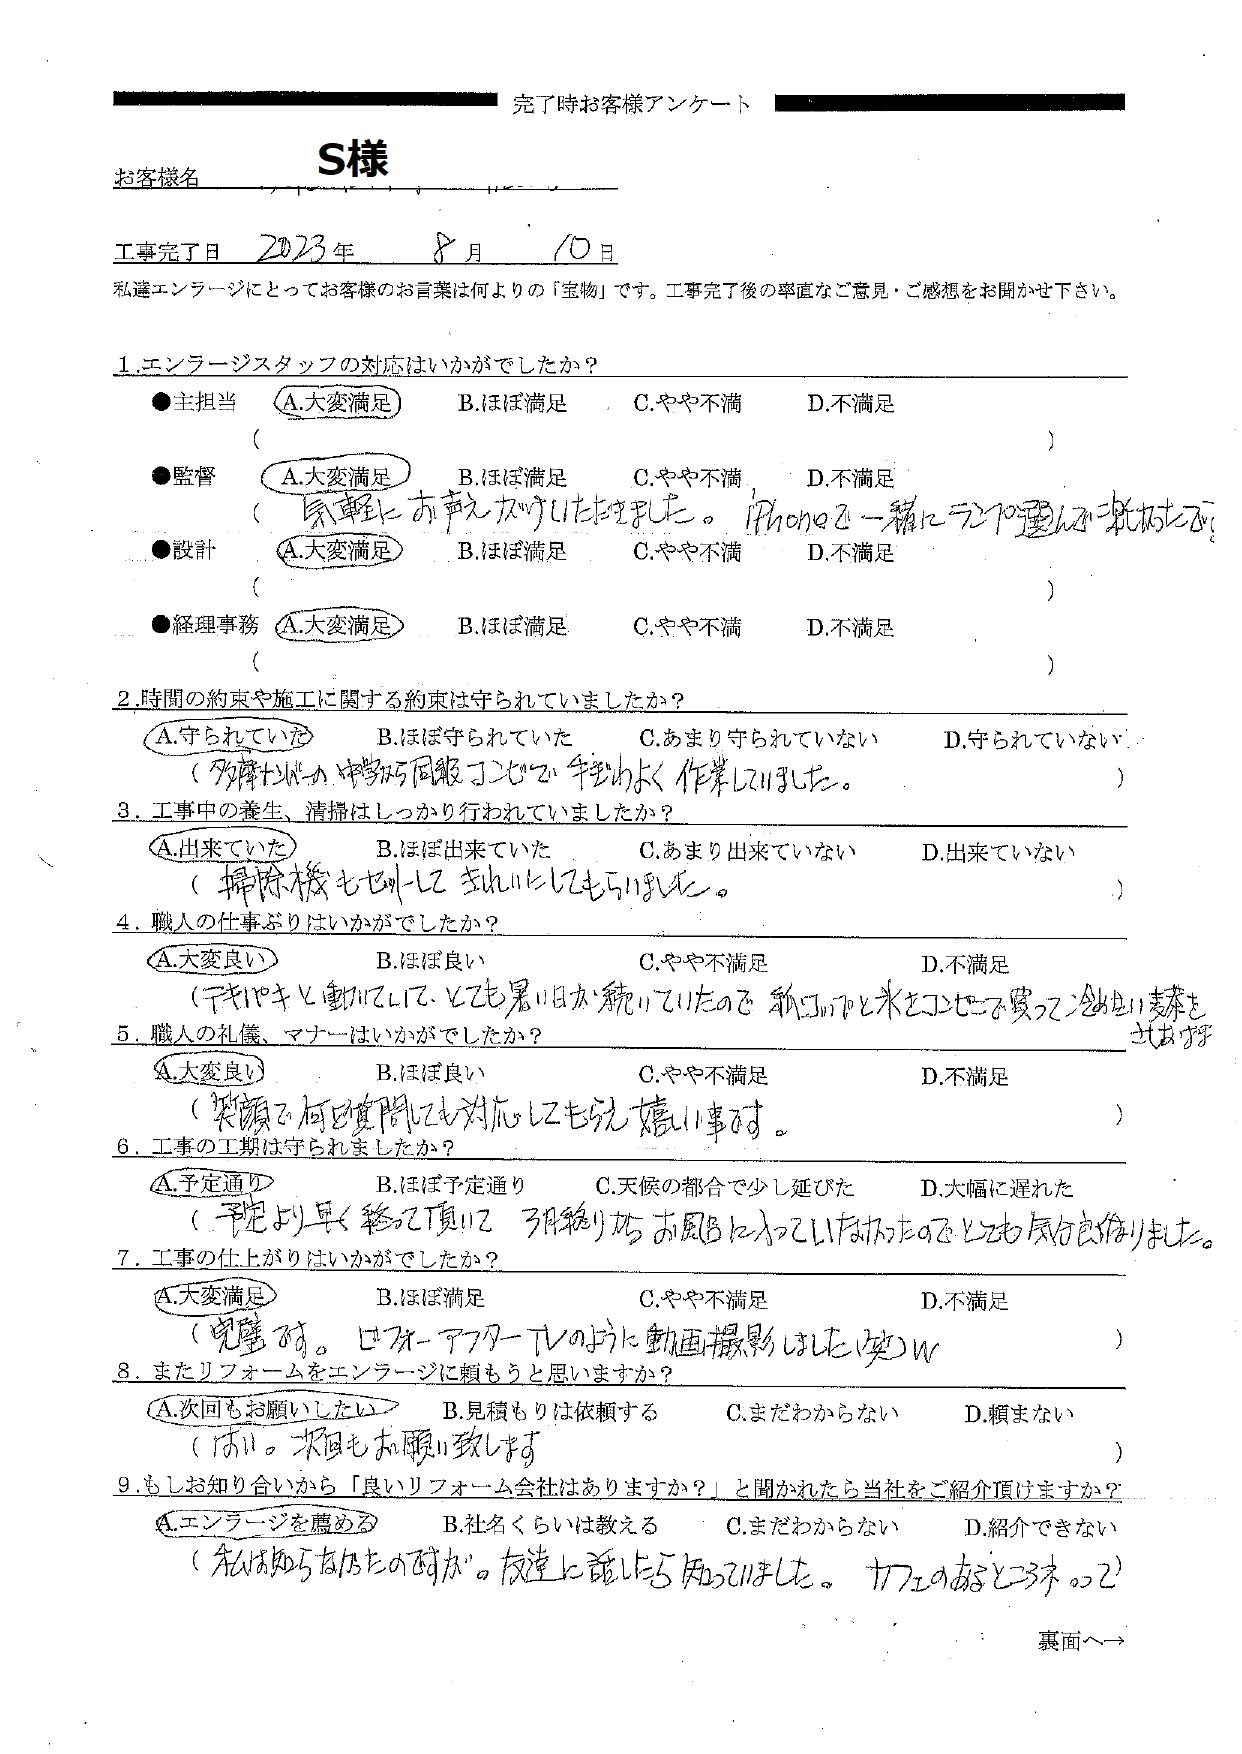 完了時お客様アンケート
お客様名 S様
工事完了日 2023年 8月 10日
私達エンラージにとってお客様のお言葉は何よりの「宝物」です。工事完了後の率直なご意見・ご感想をお聞かせ下さい。
1.エンラージスタッフの対応はいかがでしたか？
●主担当 A.大変満足 B.ほぼ満足 C.やや不満 D.不満足
( )
●監督 A.大変満足 B.ほぼ満足 C.やや不満 D.不満足
( 気軽にお声えがけいただきました。 iPhoneで一緒にランプ選んで
●設計 A.大変満足 B.ほぼ満足 C.やや不満 D.不満足
( )
●経理事務 A.大変満足 B.ほぼ満足 C.やや不満 D.不満足
( )
2.時間の約束や施工に関する約束は守られていましたか？
A.守られていた B.ほぼ守られていた C.あまり守られていない D.守られていない
( 多摩ナンバーの 中学から同級コンビで 手ぎわよく作業していました。 )
3. 工事中の養生、清掃はしっかり行われていましたか？
A.出来ていた B.ほぼ出来ていた C.あまり出来ていない D.出来ていない
( 掃除機もセットして きれいにしてもらいました。 )
4. 職人の仕事ぶりはいかがでしたか？
A.大変良い B.ほぼ良い C.やや不満足 D.不満足
(テキパキと動いていて、とても暑い日が続いていたので 紙コップと氷をコンビニで買って冷めたい麦茶を
5. 職人の礼儀、マナーはいかがでしたか？
A.大変良い B.ほぼ良い C.やや不満足 D.不満足
( 笑顔で何を質問しても対応してもらえ嬉しい事です。 )
6. 工事の工期は守られましたか？
A.予定通り B.ほぼ予定通り C.天候の都合で少し延びた D.大幅に遅れた
( 予定より早く終って頂いて 3月終りからお風呂に入っていなかったのでとても気分良くなりました。
7. 工事の仕上がりはいかがでしたか？
A.大変満足 B.ほぼ満足 C.やや不満足 D.不満足
( 完璧です。 ビフォーアフターTVのように動画撮影しました(笑)w )
8. またリフォームをエンラージに頼もうと思いますか？
A.次回もお願いしたい B.見積もりは依頼する C.まだわからない D.頼まない
( はい。次回もお願い致します )
9.もしお知り合いから「良いリフォーム会社はありますか？」と聞かれたら当社をご紹介頂けますか？
A.エンラージを薦める B.社名くらいは教える C.まだわからない D.紹介できない
( 私は知らなかったのですが。友達に話したら知っていました。 カフェのあるところネ。って)
裏面へ→